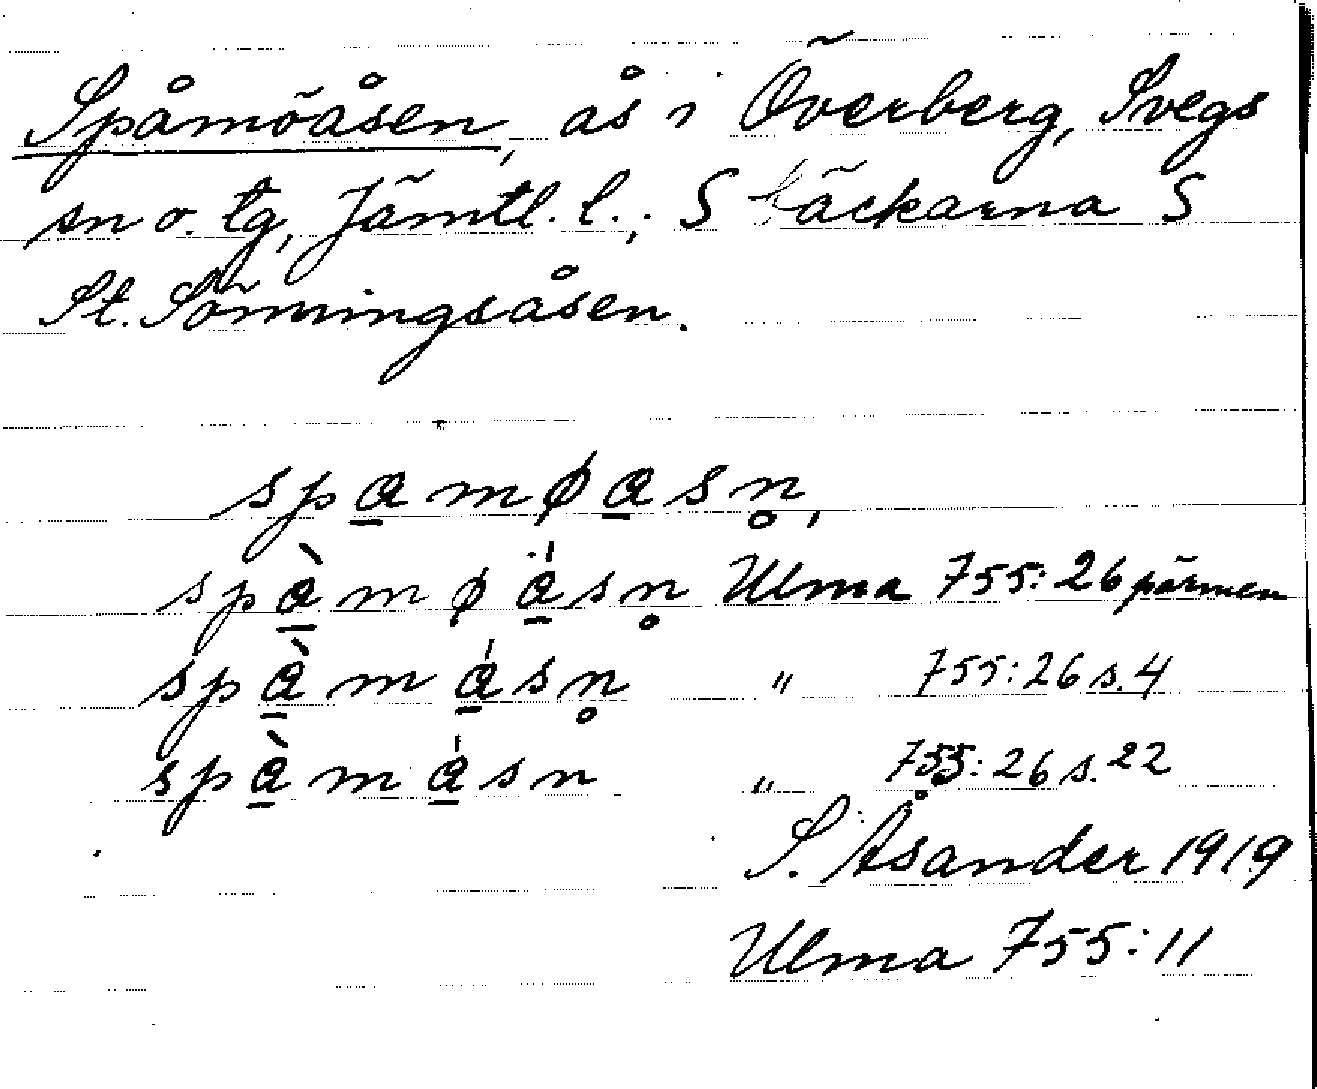 Spåmöåsen, ås i Överberg, Svegs
sn o. tg, Jämtl. l.; S bäckarna S
St. Sönningsåsen.
spa̲møa̲sn̥,
spà̲møá̲sn̥ Ulma 755:26 pärmen
spà̲má̲sn̥ " 755:26 s.4
spà̲má̲sn " 755:26 s.22
S. Åsander 1919
Ulma 755:11